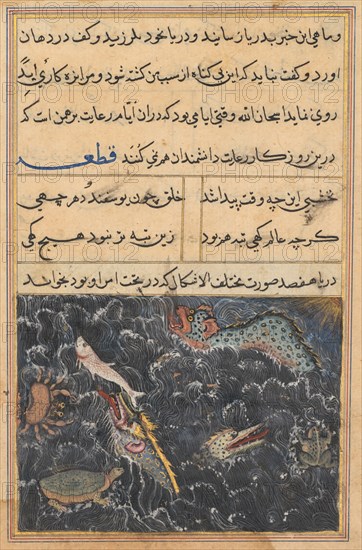 و ماهی این خبر بدریا رسانید و دریا بخود بلرزید و کف در دهان
اورد و کفت نباید که این بی کناه از سبب من کشته شود و مرا بزه کاری ابد
روی نماید سبحان الله وقتی ایامی بود که دران ایام رعایت برهمن است که
درین روزکار رعایت دانشمندان هم نمی کنند قطعه
نخشبی این چه وقت پیدا شد
خلق چون یوسفند و هم چهی
کر چه عالم کهی تبه هم بود
زین تبه تر نبود هیچ کهی
دریا هفصد صورت مختلف الاشکال که در تحت امر او بود بخواند